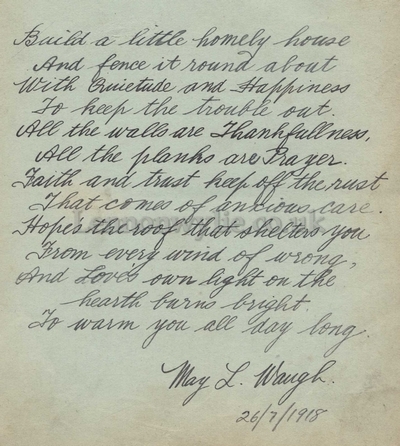 Build a little homely house
And fence it round about
With Quietude and Happiness
To keep the trouble out.
All the walls are Thankfullness,
All the planks are Prayer.
Faith and trust keep off the rust
That comes of anxious care.
Hopes the roof that shelters you
From every wind of wrong,
And Loves own light on the
hearth burns bright.
To warm you all day long.
May L. Waugh.
26/7/1918